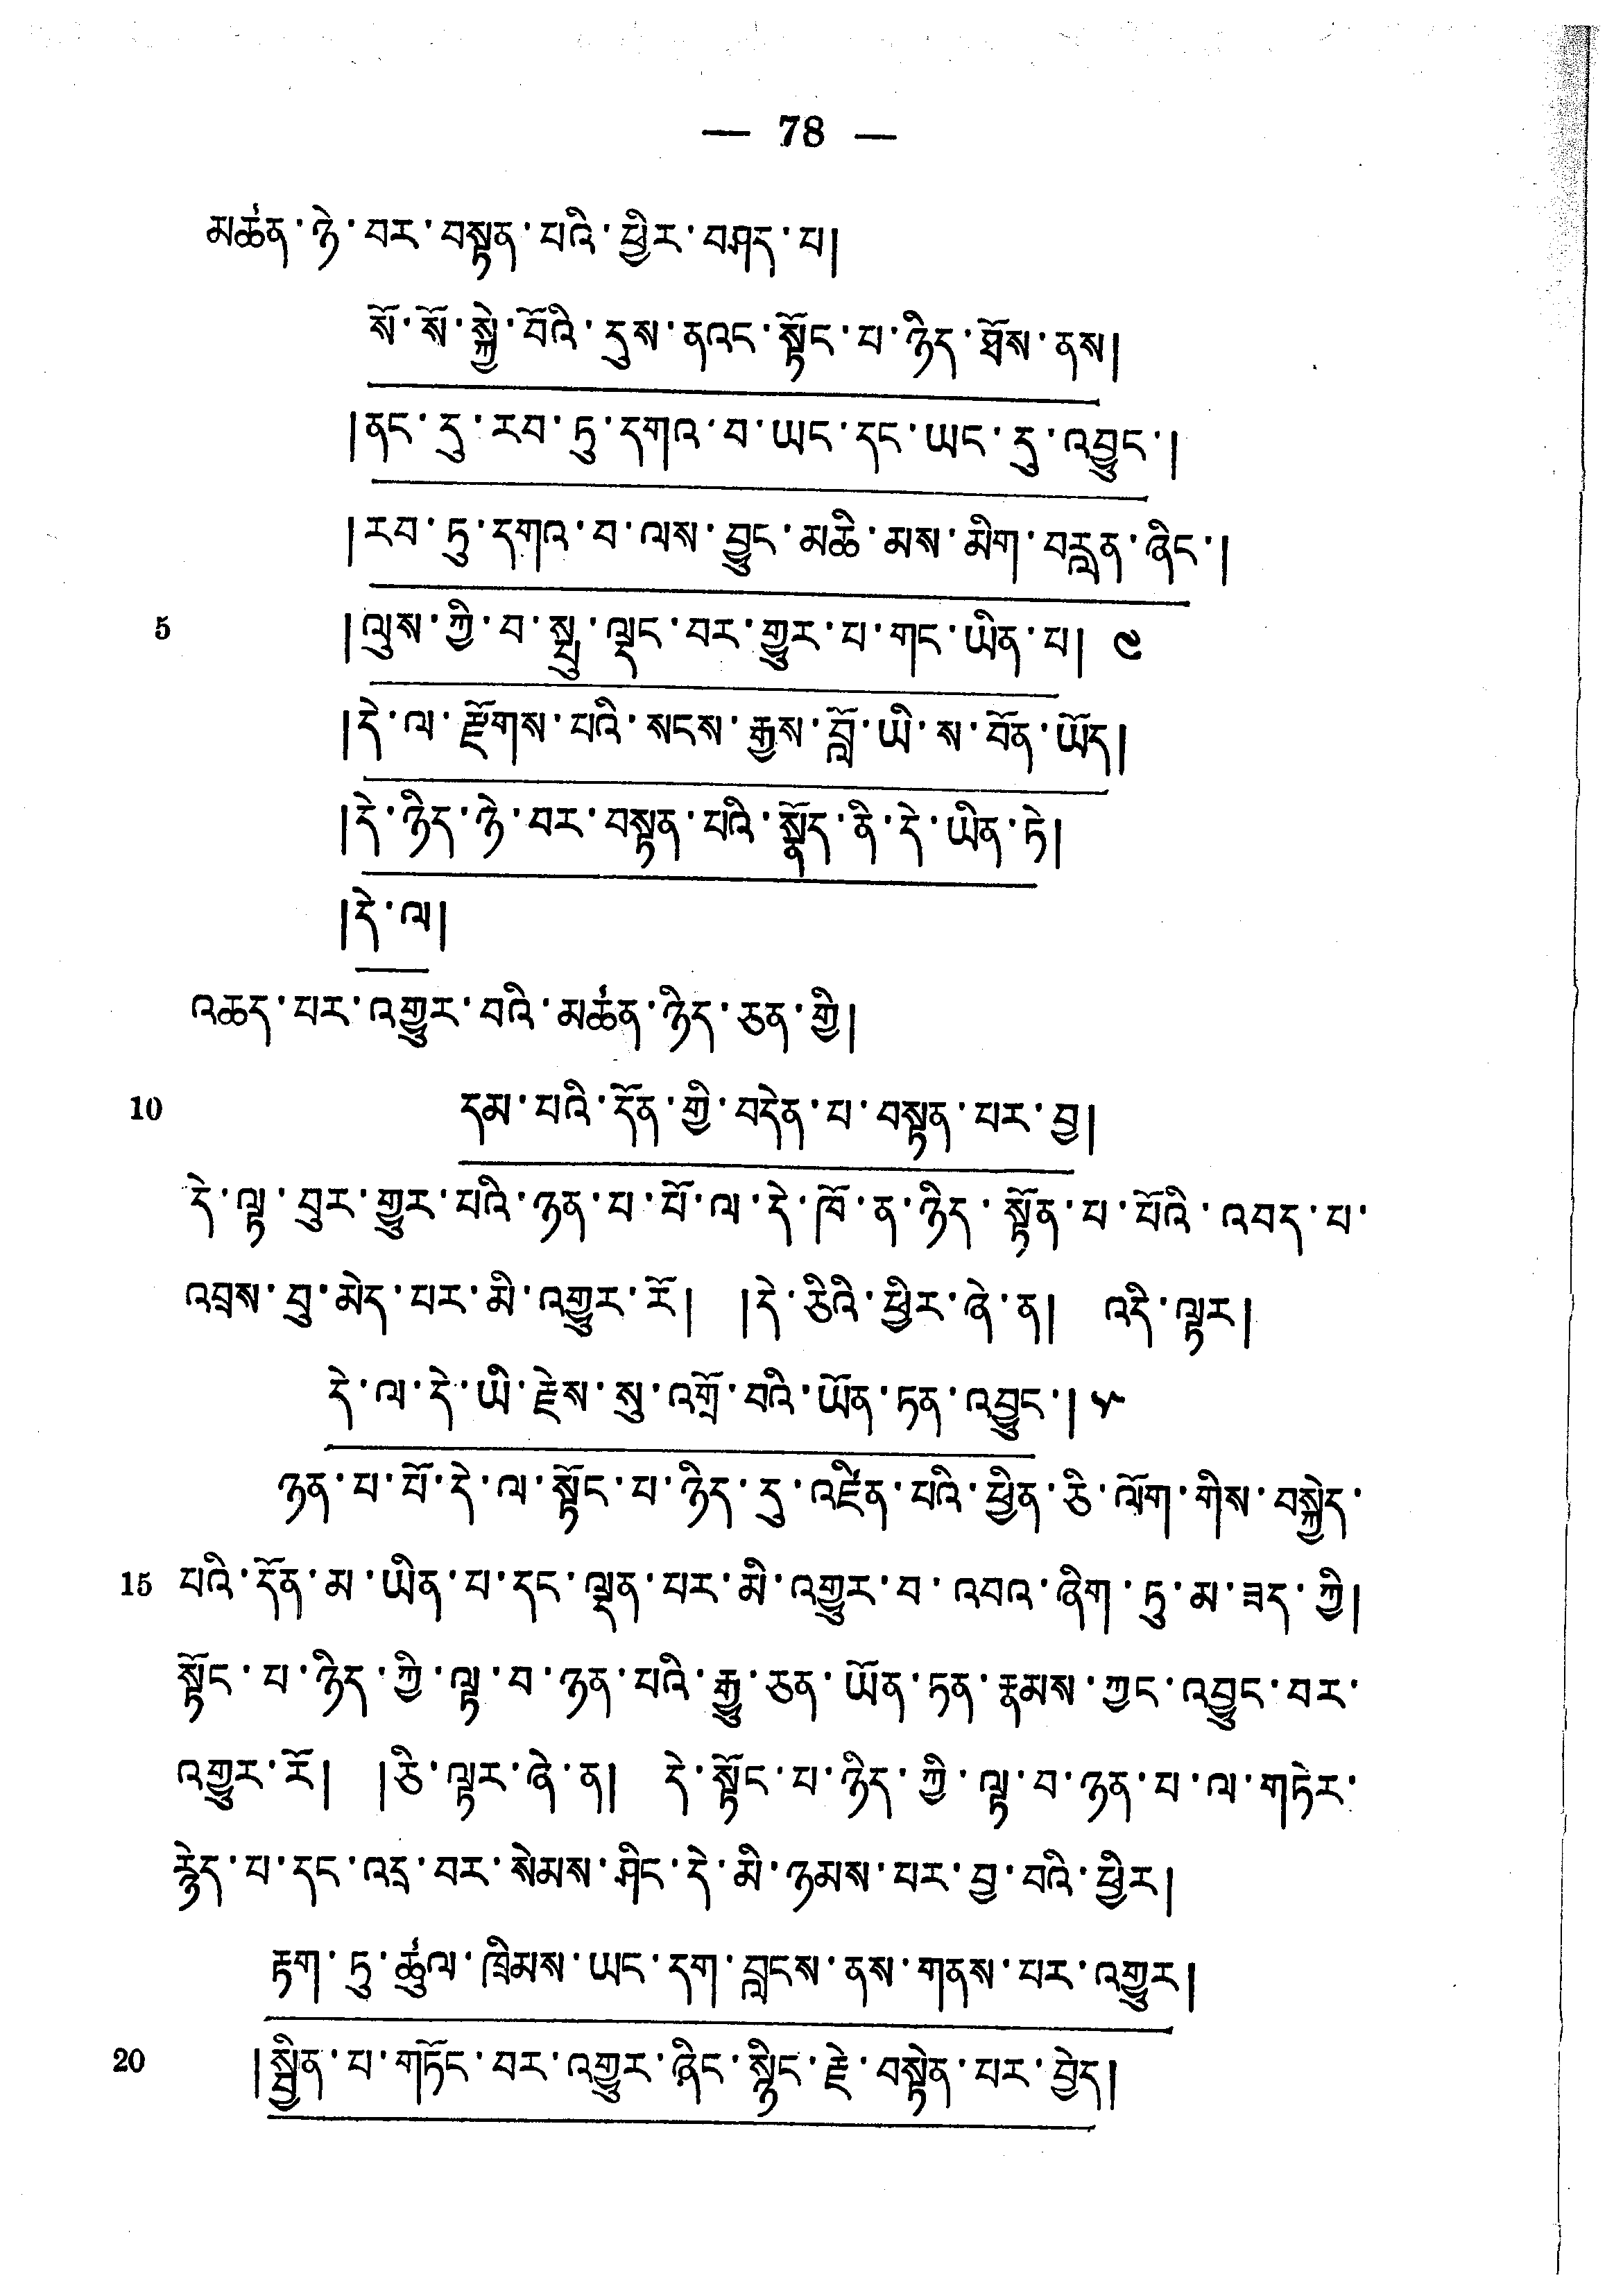 — 78 —
མཚན་ཉེ་བར་བསྟན་པའི་ཕྱིར་བཤད་པ།
སོ་སོ་སྐྱེ་བོའི་དུས་ནའང་སྟོང་པ་ཉིད་ཐོས་ནས།
།ནང་དུ་རབ་ཏུ་དགའ་བ་ཡང་དང་ཡང་དུ་འབྱུང་།
།རབ་ཏུ་དགའ་བ་ལས་བྱུང་མཆི་མས་མིག་བརླན་ཞིང་།
5 །ལུས་ཀྱི་བ་སྤུ་ལྡང་བར་གྱུར་པ་གང་ཡིན་པ། ༤
།དེ་ལ་རྫོགས་པའི་སངས་རྒྱས་བློ་ཡི་ས་བོན་ཡོད།
།དེ་ཉིད་ཉེ་བར་བསྟན་པའི་སྣོད་ནི་དེ་ཡིན་ཏེ།
།དེ་ལ།
འཆད་པར་འགྱུར་བའི་མཚན་ཉིད་ཅན་གྱི།
10 དམ་པའི་དོན་གྱི་བདེན་པ་བསྟན་པར་བྱ།
དེ་ལྟ་བུར་གྱུར་པའི་ཉན་པ་པོ་ལ་དེ་ཁོ་ན་ཉིད་སྟོན་པ་པོའི་འབད་པ་
འབྲས་བུ་མེད་པར་མི་འགྱུར་རོ། །དེ་ཅིའི་ཕྱིར་ཞེ་ན། འདི་ལྟར།
དེ་ལ་དེ་ཡི་རྗེས་སུ་འགྲོ་བའི་ཡོན་ཏན་འབྱུང་། ༥
ཉན་པ་པོ་དེ་ལ་སྟོང་པ་ཉིད་དུ་འཛིན་པའི་ཕྱིན་ཅི་ལོག་གིས་བསྐྱེད་
15 པའི་དོན་མ་ཡིན་པ་དང་ལྡན་པར་མི་འགྱུར་བ་འབའ་ཞིག་ཏུ་མ་ཟད་ཀྱི།
སྟོང་པ་ཉིད་ཀྱི་ལྟ་བ་ཉན་པའི་རྒྱུ་ཅན་ཡོན་ཏན་རྣམས་ཀྱང་འབྱུང་བར་
འགྱུར་རོ། །ཅི་ལྟར་ཞེ་ན། དེ་སྟོང་པ་ཉིད་ཀྱི་ལྟ་བ་ཉན་པ་ལ་གཏེར་
རྙེད་པ་དང་འདྲ་བར་སེམས་ཤིང་དེ་མི་ཉམས་པར་བྱ་བའི་ཕྱིར།
རྟག་ཏུ་ཚུལ་ཁྲིམས་ཡང་དག་བླངས་ནས་གནས་པར་འགྱུར།
20 །སྦྱིན་པ་གཏོང་བར་འགྱུར་ཞིང་སྙིང་རྗེ་བསྟེན་པར་བྱེད།